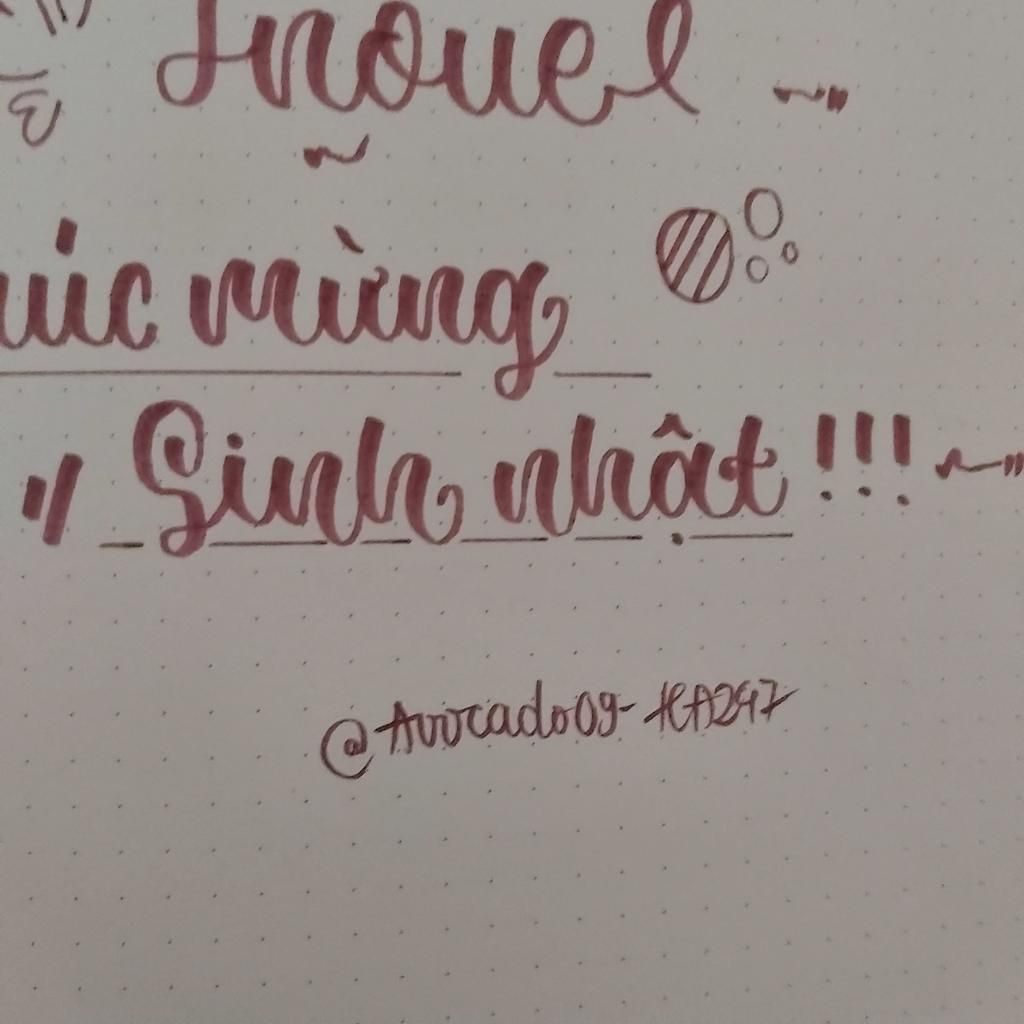 Inouel
úc mừng
Sinh nhật!!!
@Avocado09-HA247